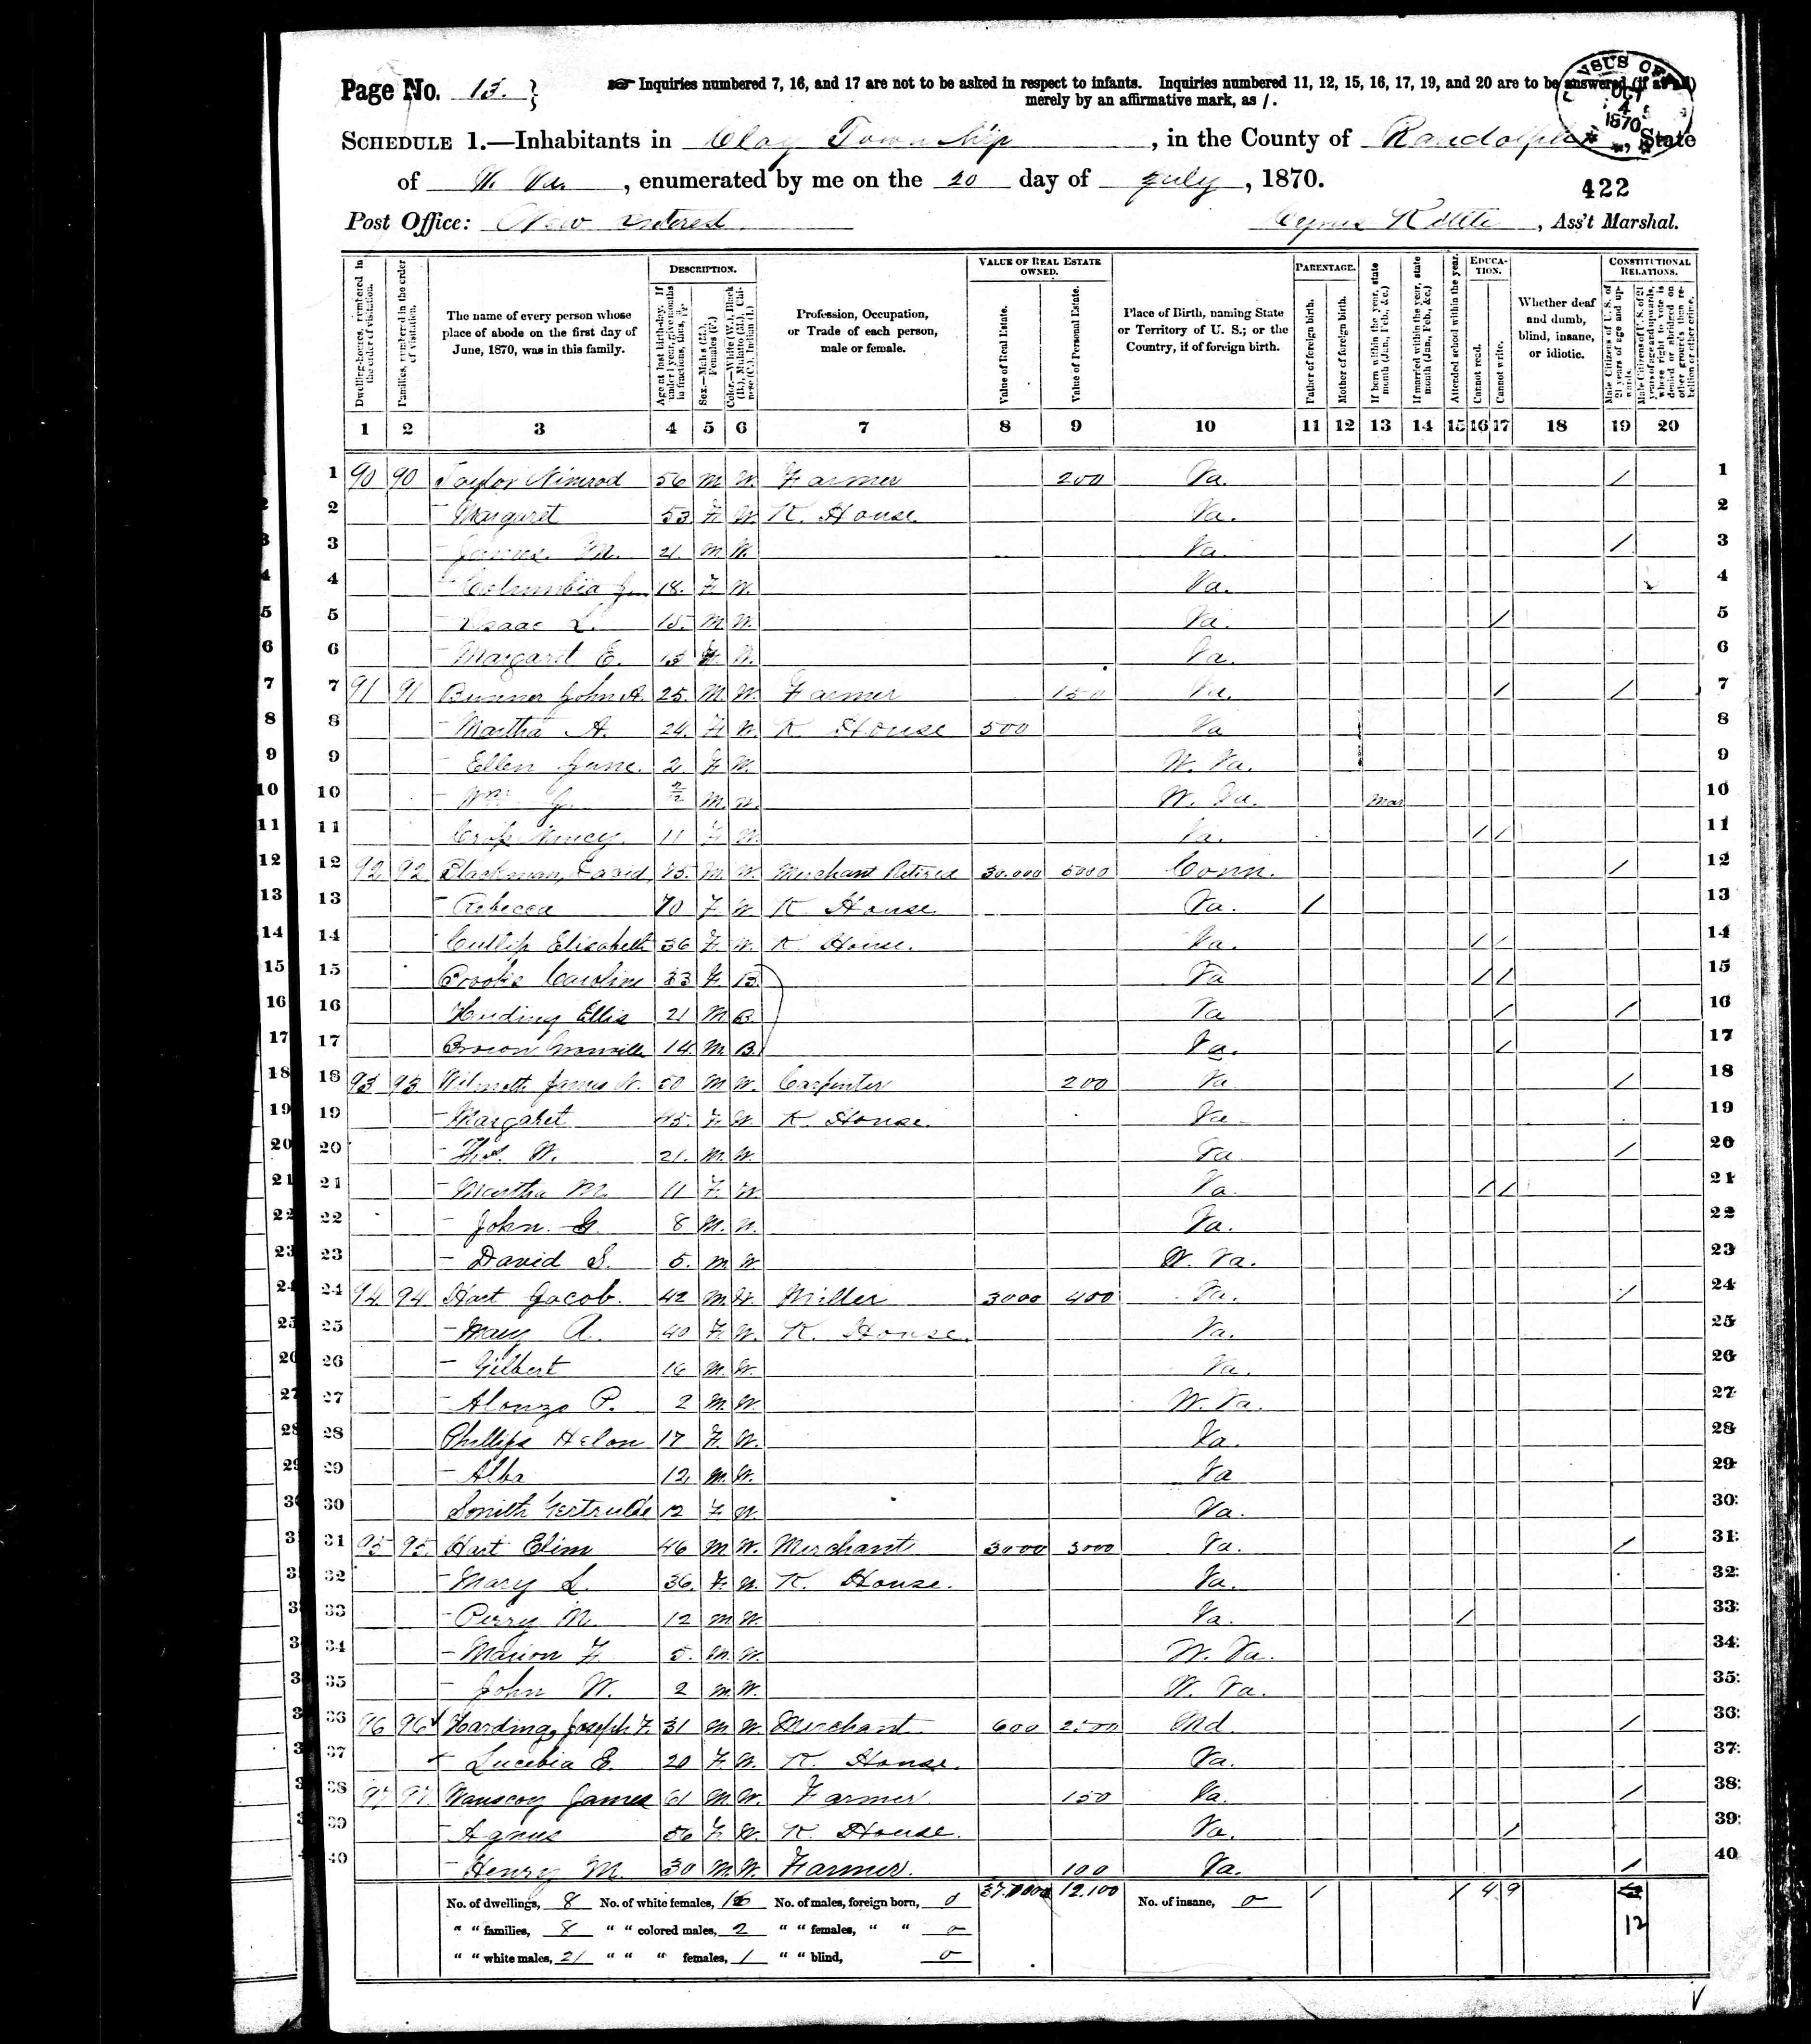 Page No. 13.
Inquiries numbered 7, 16, and 17 are not to be asked in respect to infants. Inquiries numbered 11, 12, 15, 16, 17, 19, and 20 are to be answered (if at all)
merely by an affirmative mark, as /.
CENSUS OFF OCT 4 1870
SCHEDULE 1.—Inhabitants in Clay Township, in the County of Randolph, State
of W. Va., enumerated by me on the 20 day of July, 1870.
422
Post Office: New Interest Cyrus Kittle, Ass't Marshal.
Dwelling-houses, numbered in the order of visitation.
Families, numbered in the order of visitation.
The name of every person whose place of abode on the first day of June, 1870, was in this family.
DESCRIPTION.
Age at last birth-day. If under 1 year, give months in fractions, thus, 3/12.
Sex.—Males (M.), Females (F.)
Color.—White (W.), Black (B.), Mulatto (M.), Chinese (C.), Indian (I.)
Profession, Occupation, or Trade of each person, male or female.
VALUE OF REAL ESTATE OWNED.
Value of Real Estate.
Value of Personal Estate.
Place of Birth, naming State or Territory of U. S.; or the Country, if of foreign birth.
PARENTAGE.
Father of foreign birth.
Mother of foreign birth.
If born within the year, state month (Jan., Feb., &c.)
If married within the year, state month (Jan., Feb., &c.)
Attended school within the year.
EDUCATION.
Cannot read.
Cannot write.
Whether deaf and dumb, blind, insane, or idiotic.
CONSTITUTIONAL RELATIONS.
Male Citizens of U. S. of 21 years of age and upwards.
Male Citizens of U. S. of 21 years of age and upwards, whose right to vote is denied or abridged on other grounds than rebellion or other crime.
1 2 3 4 5 6 7 8 9 10 11 12 13 14 15 16 17 18 19 20
1 90 90 Taylor Nimrod 56 M W. Farmer 200 Va. / 1
2 — Margaret 53 F. W. K. House Va. 2
3 — James M. 21. M W. Va. / 3
4 — Columbia J. 18. F. W. Va. 4
5 — Isaac L. 15. M. W. Va. / 5
6 — Margaret E. 13 F. W. Va. 6
7 91 91 Bunner John A. 25. M. W. Farmer 150 Va. / / 7
8 — Martha A. 24. F. W. K House 500 Va 8
9 — Ellen Jane. 2. F. W. W. Va. 9
10 — Wm G. 2/12 M. W. W. Va. Mar 10
11 Nancy 11 F. W. Va. / / 11
12 92 92 Blackman, David 85. M. W. Merchant Retired 30.000 5000 Conn. / 12
13 — Rebecca 70 F. W K House. Va. / 13
14 Cutlip Elisabeth 36 F. W. K House. Va. / / 14
15 Crooks Caroline 33 F. B. Va / / 15
16 Harding Ellis 21 M B. Va / / 16
17 Brown Granville 14. M. B. Va. / 17
18 93 93. Wilmoth James W. 50 M W. Carpenter 200 Va / 18
19 — Margaret 45. F. W. K. House. Va 19
20 — Thos. W. 21. M. W. Va / 20
21 — Martha M. 11 F. W. Va. / / 21
22 — John. G. 8 M. W. Va. 22
23 — David S. 5. M W W. Va. 23
24 94 94 Hart Jacob. 42 M. W. Miller 3000 400 Va. / 24
25 — Mary A. 40 F. W. K. House. Va. 25
26 — Gilbert 16 M. W. Va. 26
27 — Alonzo P. 2 M. W. W. Va. 27
28 Phillips Helon 17 F. W. Va. 28
29 — Alba 12. M. W. Va 29
30 Smith Gertrude 12 F W. Va. 30
31 95 95. Hart Elim 46 M W. Merchant 3000 3000 Va. / 31
32 — Mary L. 36. F. W. K. House. Va. 32
33 — Perry M. 12 M W. Va. / 33
34 — Marion F. 5. M. W. W. Va. 34
35 — John W. 2 M W. W. Va. 35
36 96 96 Harding, Joseph F. 31 M W. Merchant 600 2500 Md. / 36
37 Lucebia E. 20 F. W. K. House. Va. 37
38 97 97 Wanscoy James 61 M W. Farmer 150 Va. / 38
39 — Agnes 56 F. W. K. House. Va. / 39
40 — Henry M. 30 M. W. Farmer. 100 Va. / 40
No. of dwellings, 8 No. of white females, 16 No. of males, foreign born, 0 12.100 No. of insane, 0 1 1 4 9
" " families, 8 " " colored males, 2 " " females, " " 0 12
" " white males, 21 " " " females, 1 " " blind, 0